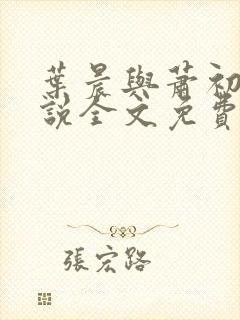 葉晨與蕭初
說全文免費
張宏路